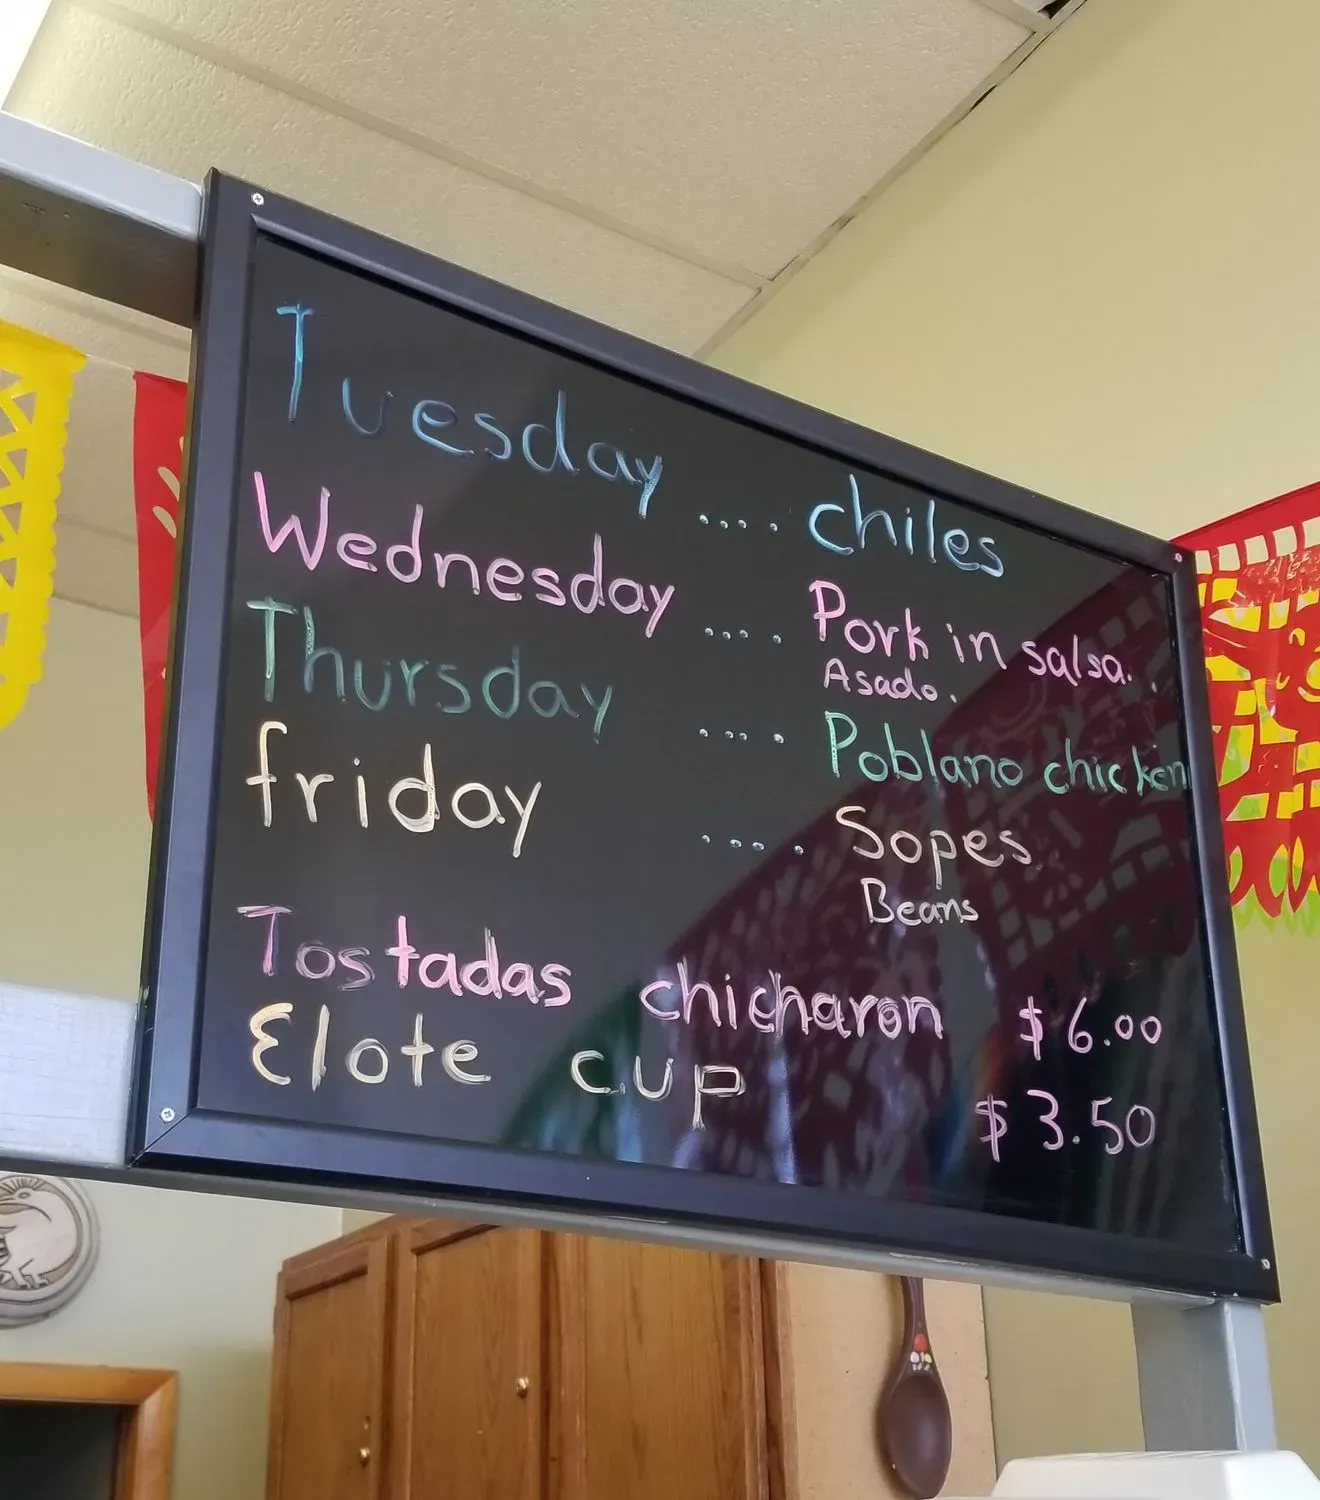 Tuesday .... chiles
Wednesday .... Pork in salsa.
Asado.
Thursday .... Poblano chicken
friday .... Sopes
Beans
Tostadas chicharon $6.00
Elote cup $3.50